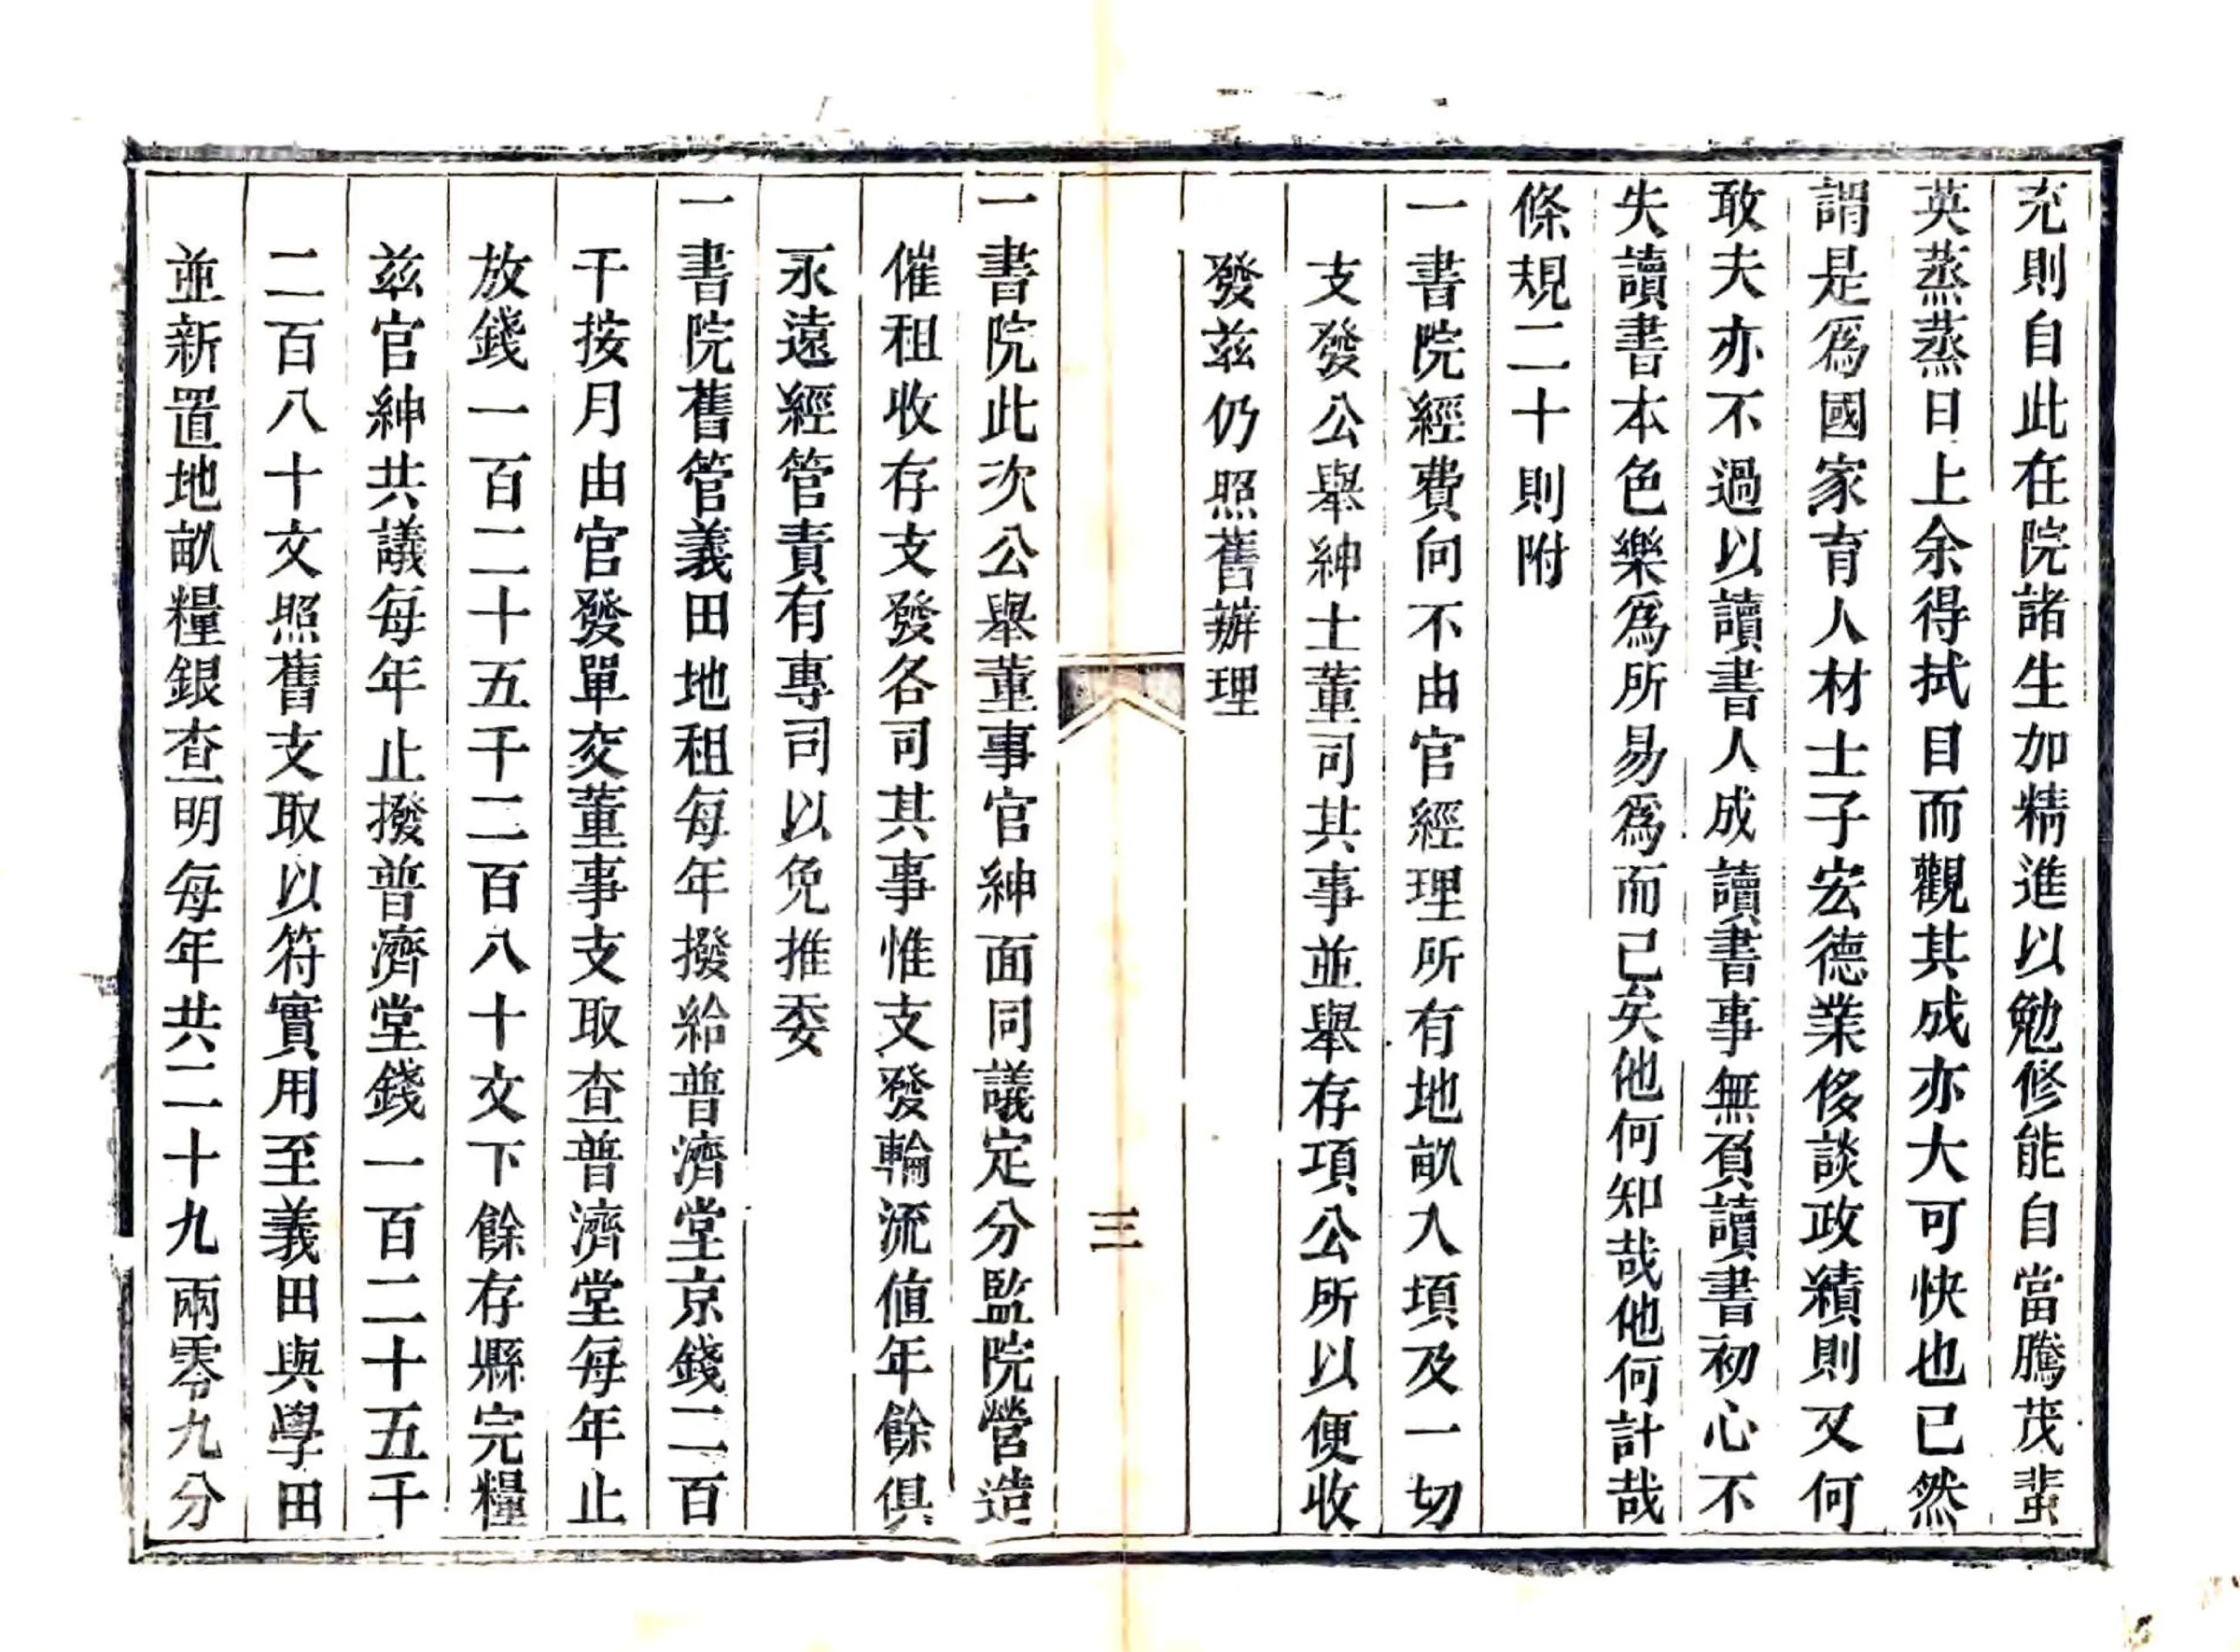 充則自此在院諸生加精進以勉修能自當騰茂蜚
英蒸蒸日上余得拭目而觀其成亦大可快也已然
謂是爲國家育人材士子宏德業侈談政績則又何
敢夫亦不過以讀書人成讀書事無負讀書初心不
失讀書本色樂爲所易爲而已矣他何知哉他何計哉
條規二十則附
一書院經費向不由官經理所有地畝入項及一切
支發公舉紳士董司其事並舉存項公所以便收
發茲仍照舊辦理
三
一書院此次公舉董事官紳面同議定分監院營造
催租收存支發各司其事惟支發輪流値年餘俱
永遠經管責有專司以免推委
一書院舊管義田地租每年撥給普濟堂京錢二百
千按月由官發單交董事支取查普濟堂每年止
放錢一百二十五千二百八十文下餘存縣完糧
茲官紳共議每年止撥普濟堂錢一百二十五千
二百八十文照舊支取以符實用至義田與學田
並新置地畝糧銀查明每年共二十九兩零九分